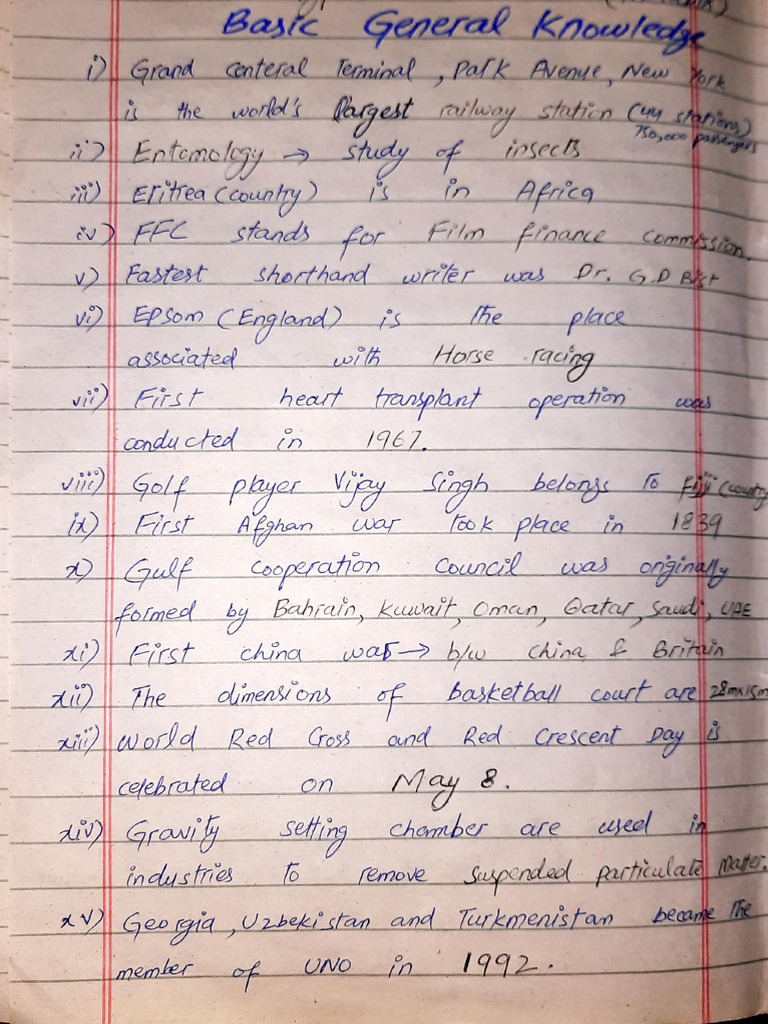 Basic General Knowledge
i) Grand Centeral Terminal, Park Avenue, New York
is the world's largest railway station (44 stations)
750,000 passengers
ii) Entomology → study of insects
iii) Eritrea (country) is in Africa
iv) FFC stands for Film finance commission.
v) Fastest shorthand writer was Dr. G.D Bist
vi) Epsom (England) is the place
associated with Horse racing
vii) First heart transplant operation was
conducted in 1967.
viii) Golf player Vijay Singh belongs to Fiji (country
ix) First Afghan war took place in 1839
x) Gulf cooperation council was originally
formed by Bahrain, Kuwait, Oman, Qatar, Saudi, UAE
xi) First china war → b/w china & Britain
xii) The dimensions of basketball court are 28mx15m
xiii) World Red Cross and Red Crescent Day is
celebrated on May 8.
xiv) Gravity setting chamber are used in
industries to remove suspended particulate matter.
xv) Georgia, Uzbekistan and Turkmenistan became the
member of UNO in 1992.